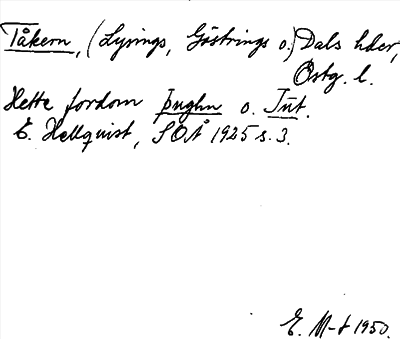 Tåkern, (Lysings, Göstrings o.) Dals hder,
Östg. l.
Hette fordom Þughn o. Tūt.
E. Hellquist, SOÅ 1925 s. 3.
E. M-t 1950.